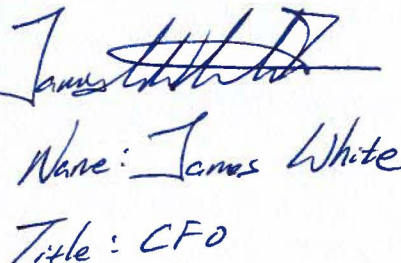 James White
Name: James White
Title: CFO